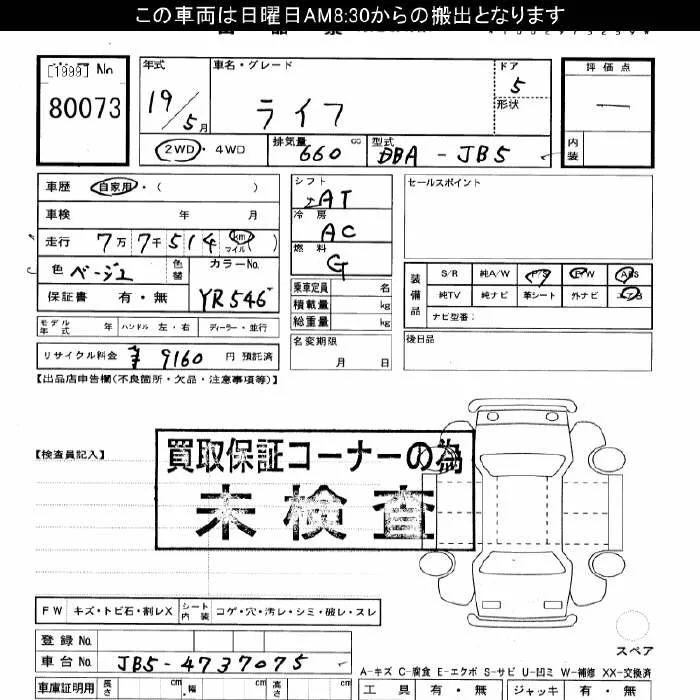 この車両は日曜日AM8:30からの搬出となります
[1999] No.
80073
年式 19/5月
車名・グレード ライフ
ドア 5
形状
評価点 —
内装
2WD・4WD 排気量 660 cc 型式 DBA-JB5
車歴 自家用・( )
車検 年 月
走行 7万7千514 km マイル( )
色 ベージュ 色替 カラーNo. YR546
保証書 有・無
モデル年式 年 ハンドル 左・右 ディーラー・並行
リサイクル料金 ¥ 9160 円 預託済
シフト IAT
冷房 AC
燃料 G
乗車定員 名
積載量 kg
総重量 kg
名変期限
月 日
セールスポイント
装備品 S/R 純A/W P/S P/W ABS
純TV 純ナビ 革シート 外ナビ エアB
ナビ型番：
後日品
【出品店申告欄(不良箇所・欠品・注意事項等)】
【検査員記入】
買取保証コーナーの為
未検査
FW キズ・トビ石・割レX シート内装 コゲ・穴・汚レ・シミ・破レ・スレ
スペア
登録 No.
車台 No. JB5-4737075
A-キズ C-腐食 E-エクボ S-サビ U-凹ミ W-補修 XX-交換済
車庫証明用 長さ cm 幅 cm 高さ cm
工具 有・無 ジャッキ 有・無